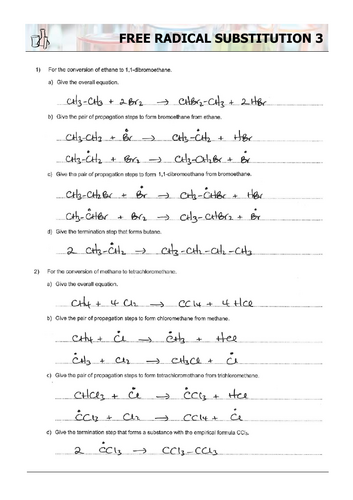 FREE RADICAL SUBSTITUTION 3
1) For the conversion of ethane to 1,1-dibromoethane.
a) Give the overall equation.
CH₃-CH₃ + 2Br₂ → CHBr₂-CH₃ + 2HBr
b) Give the pair of propagation steps to form bromoethane from ethane.
CH₃-CH₃ + Ḃr → CH₃-ĊH₂ + HBr
CH₃-ĊH₂ + Br₂ → CH₃-CH₂Br + Ḃr
c) Give the pair of propagation steps to form 1,1-dibromoethane from bromoethane.
CH₃-CH₂Br + Ḃr → CH₃-ĊHBr + HBr
CH₃-ĊHBr + Br₂ → CH₃-CHBr₂ + Ḃr
d) Give the termination step that forms butane.
2 CH₃-ĊH₂ → CH₃-CH₂-CH₂-CH₃
2) For the conversion of methane to tetrachloromethane.
a) Give the overall equation.
CH₄ + 4Cl₂ → CCl₄ + 4HCl
b) Give the pair of propagation steps to form chloromethane from methane.
CH₄ + Ċl → ĊH₃ + HCl
ĊH₃ + Cl₂ → CH₃Cl + Ċl
c) Give the pair of propagation steps to form tetrachloromethane from trichloromethane.
CHCl₃ + Ċl → ĊCl₃ + HCl
ĊCl₃ + Cl₂ → CCl₄ + Ċl
d) Give the termination step that forms a substance with the empirical formula CCl₃.
2 ĊCl₃ → CCl₃-CCl₃